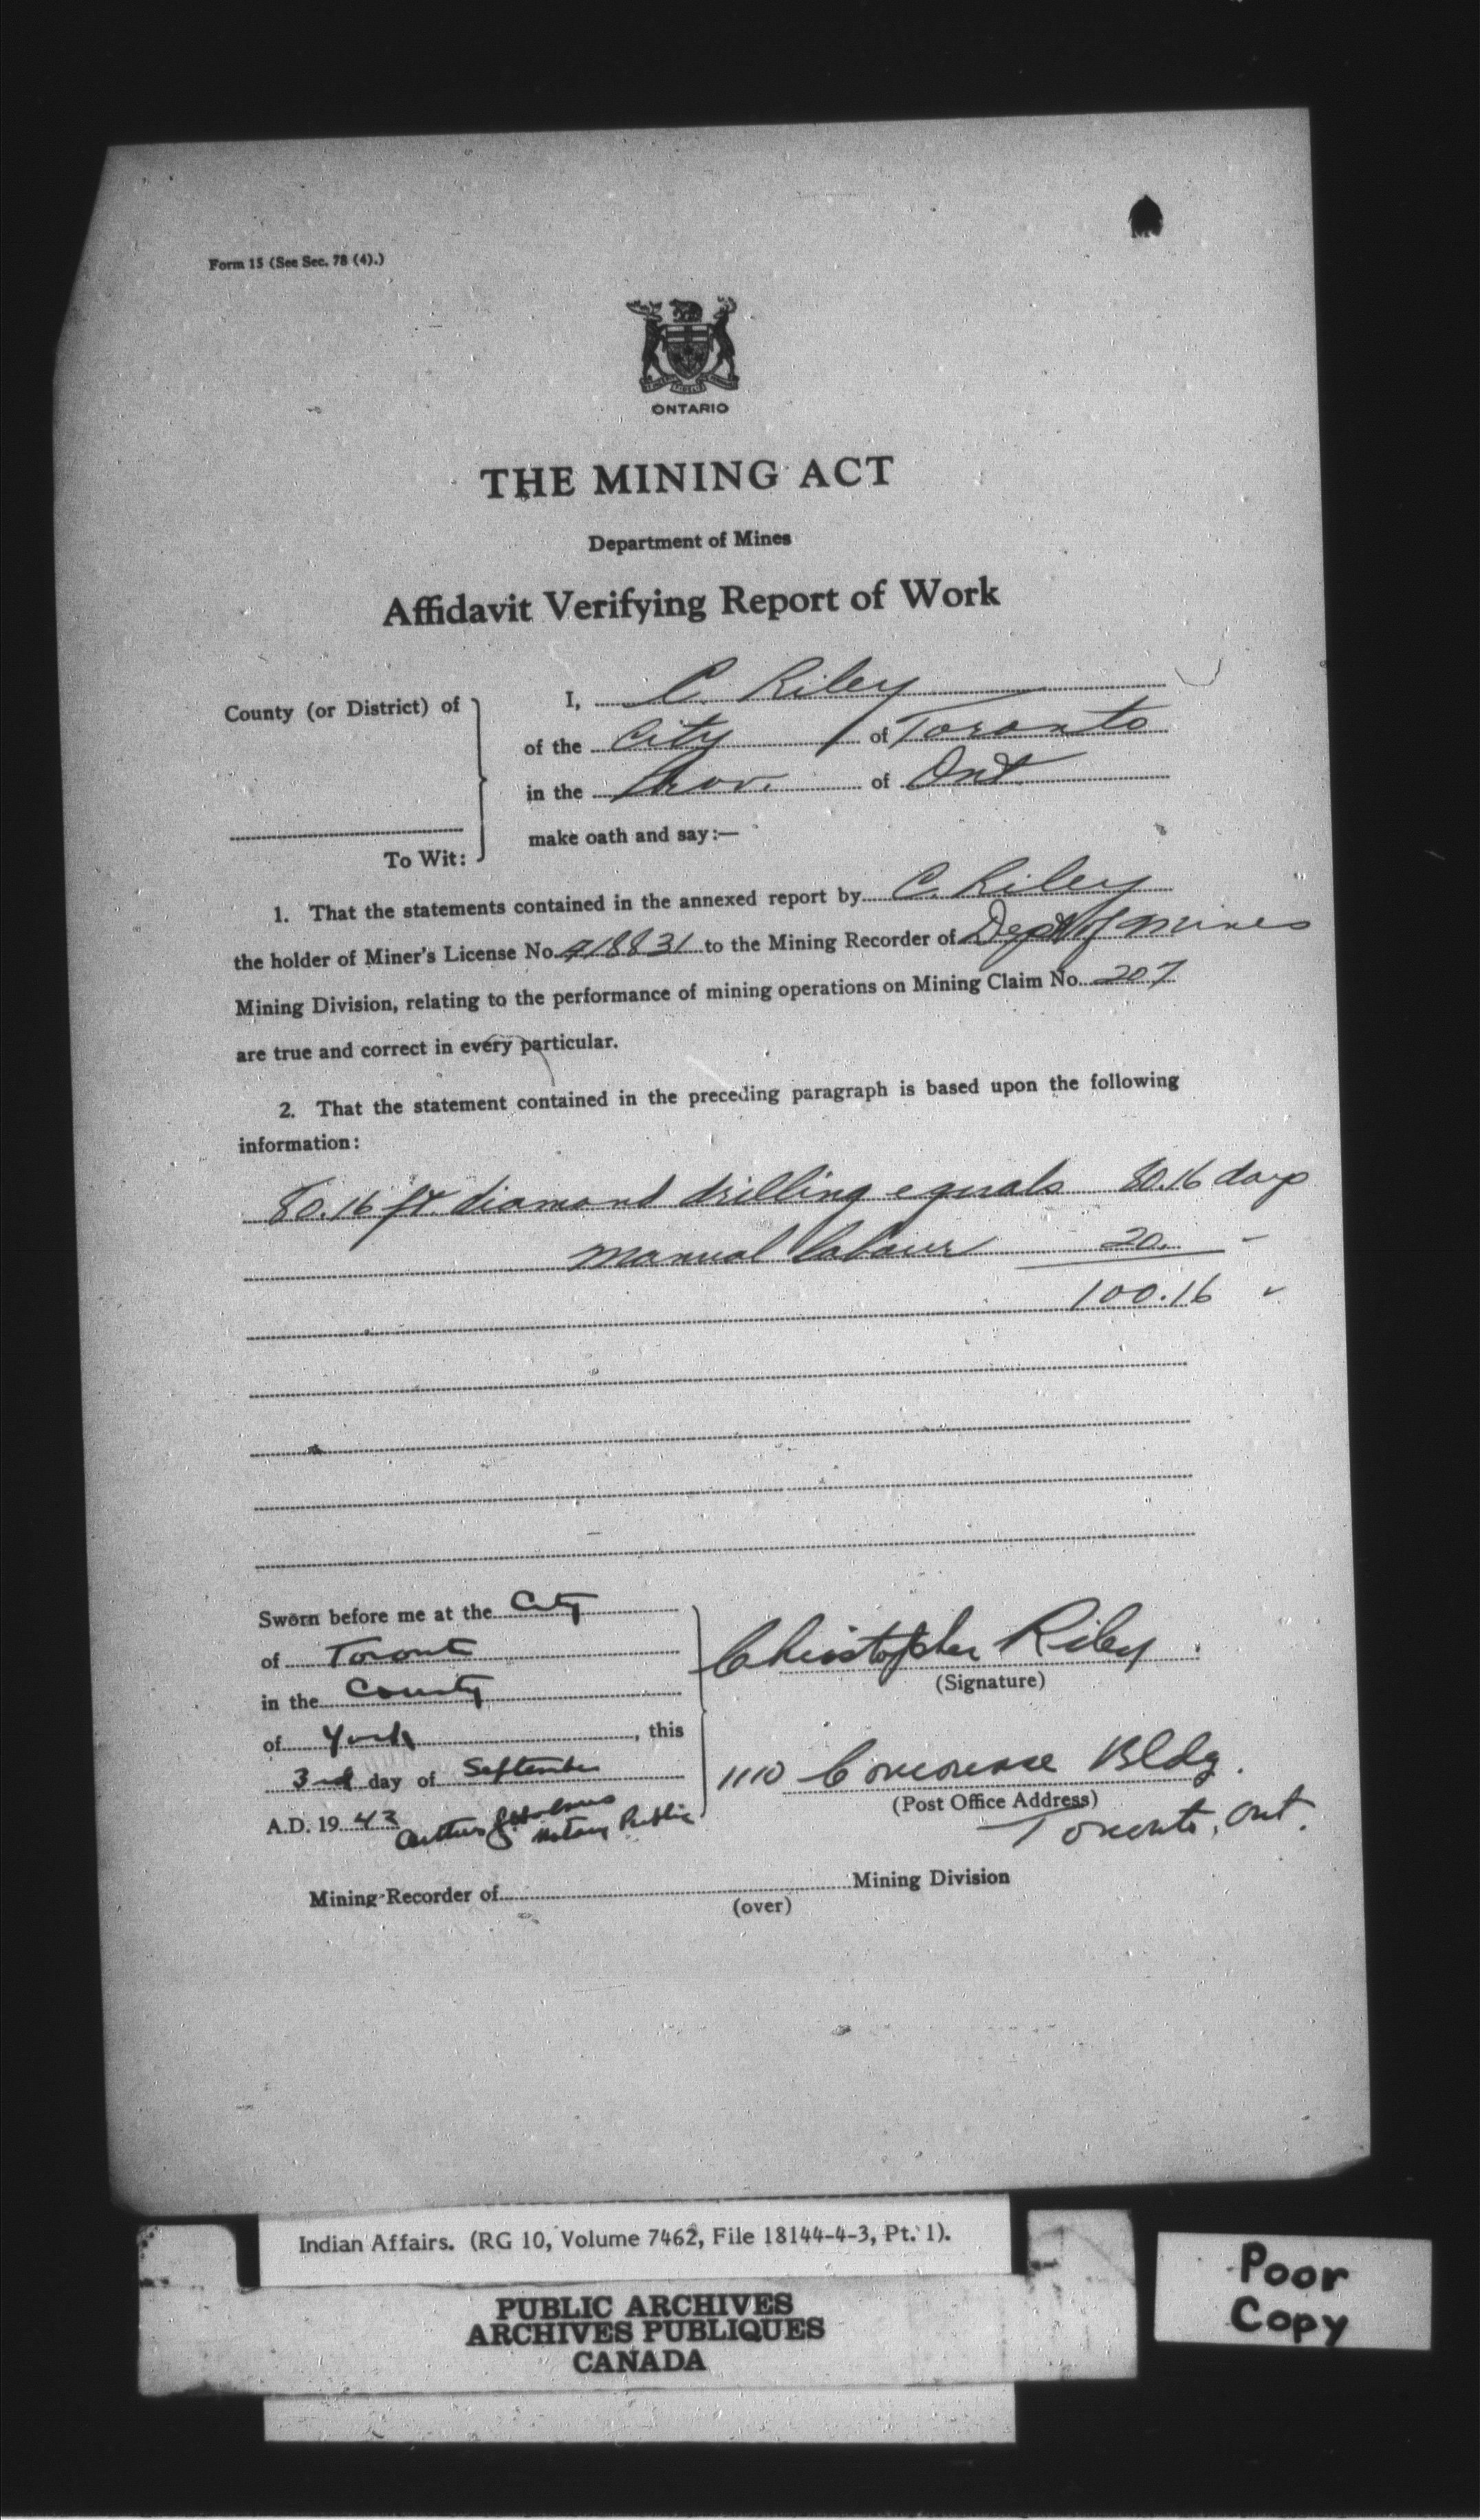 Form 15 (See Sec. 78 (4).)
ONTARIO
THE MINING ACT
Department of Mines
Affidavit Verifying Report of Work
County (or District) of
To Wit:
I, C. Riley
of the City of Toronto
in the Prov. of Ont.
make oath and say:—
1. That the statements contained in the annexed report by C. Riley
the holder of Miner's License No. A18831 to the Mining Recorder of Dept of Mines
Mining Division, relating to the performance of mining operations on Mining Claim No. 207
are true and correct in every particular.
2. That the statement contained in the preceding paragraph is based upon the following
information:
80.16 ft. diamond drilling equals 80.16 days
manual labour 20. "
100.16 "
Sworn before me at the City
of Toronto
in the County
of York, this
3rd day of September
A.D. 19 43
Arthur J. Holmes
Notary Public
Christopher Riley.
(Signature)
1110 Bldg.
(Post Office Address)
Toronto, Ont.
Mining Recorder of Mining Division
(over)
Indian Affairs. (RG 10, Volume 7462, File 18144-4-3, Pt. 1).
PUBLIC ARCHIVES
ARCHIVES PUBLIQUES
CANADA
Poor
Copy